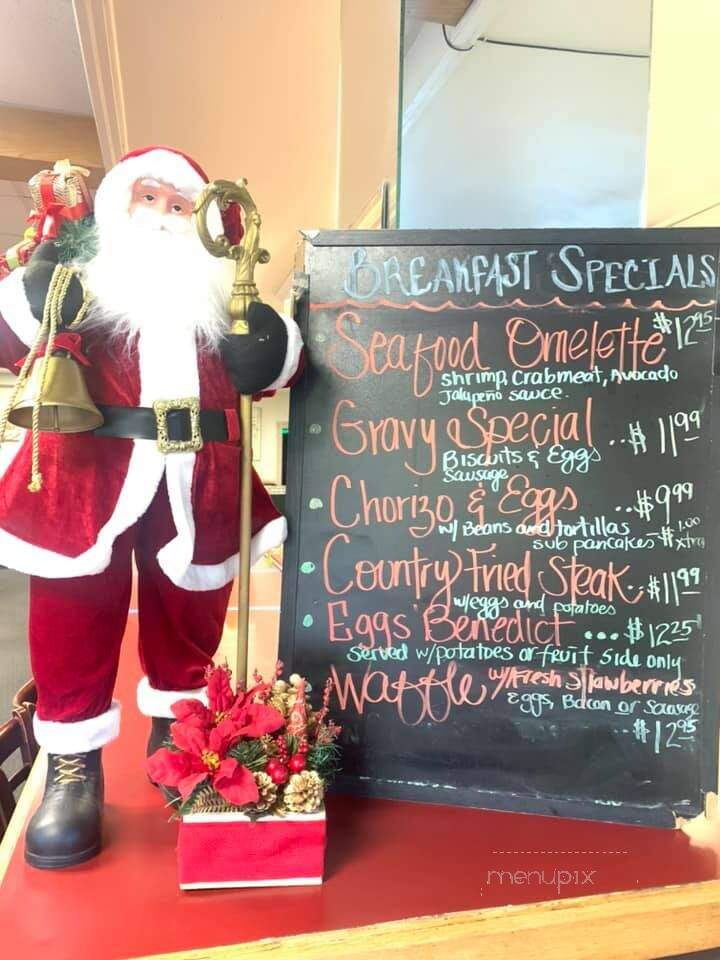 BREAKFAST SPECIALS
Seafood Omelette $12.95
Shrimp, Crabmeat, Avocado
Jalapeño sauce.
Gravy Special ..$11.99
Biscuits & Eggs
Sausage
Chorizo & Eggs ..$9.99
w/ Beans and tortillas
sub pancakes -$1.00 xtra
Country Fried Steak..$11.99
w/eggs and potatoes
Eggs Benedict ...$12.25
Served w/potatoes or fruit side only
Waffle w/Fresh Strawberries
Eggs, Bacon or Sausage
..$12.95
menupix